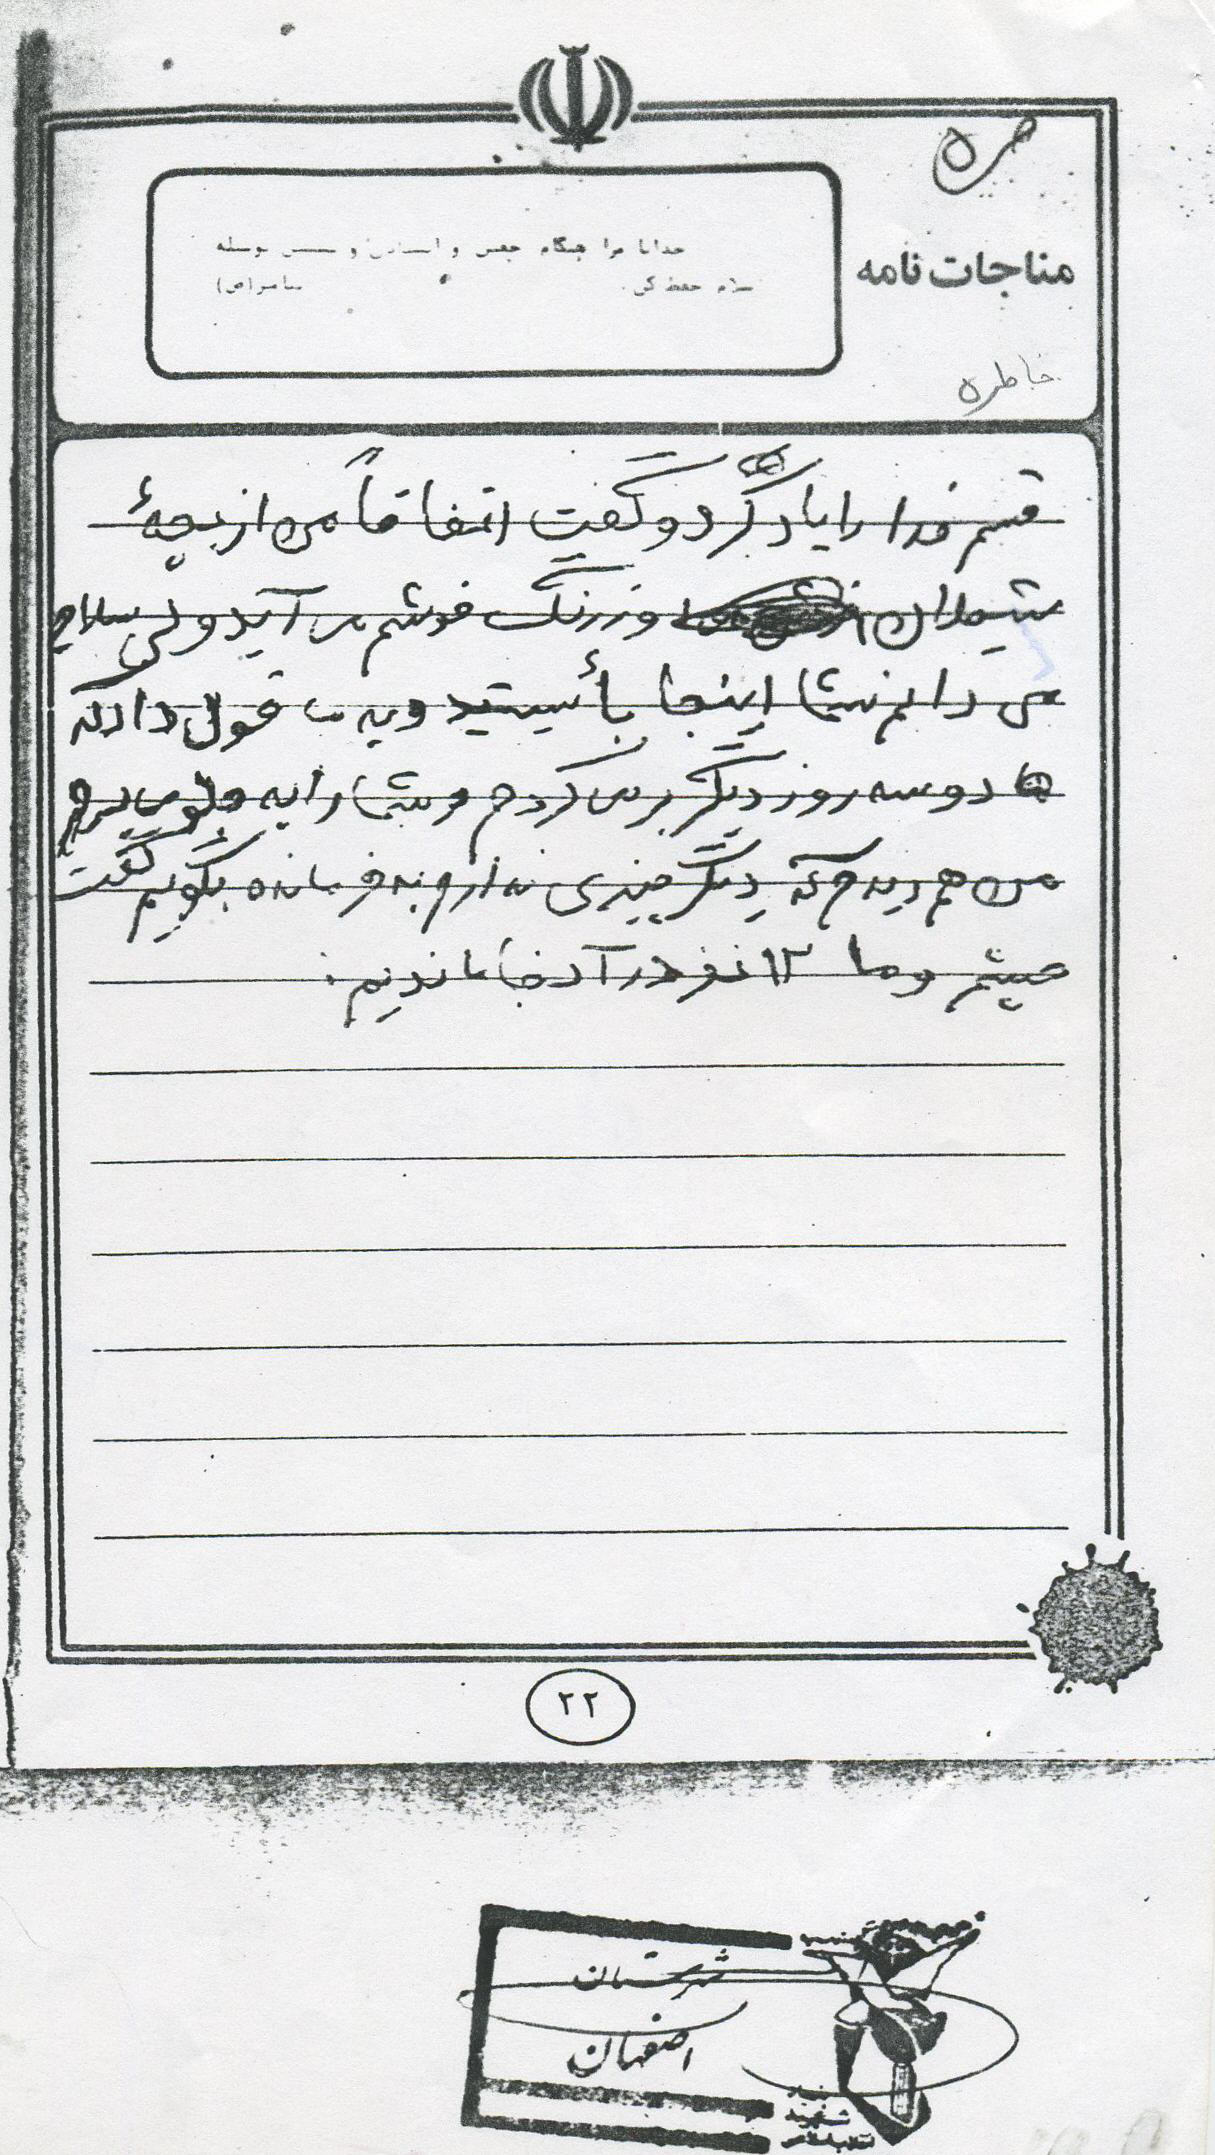 مناجات نامه
خدایا مرا هنگام و بوسیله
اسلام حفظ کن
خاطره
قسم خدا را یاد کرد و گفت اتفاقاً من از بچهٔ
شیطان و زرنگ خوشم می آید ولی سلاح
می دانم شما اینجا بأیستید و به ما قول داد که
دو سه روز دیگر برمی گردم و شما را به جلو میبرم
من هم دیدم که دیگر چیزی ندارم به فرمانده بگویم گفت
چشم و ما ۱۳ نفر در آنجا ماندیم.
۲۲
شهرستان
اصفهان
بنیاد
شهید
انقلاب اسلامی